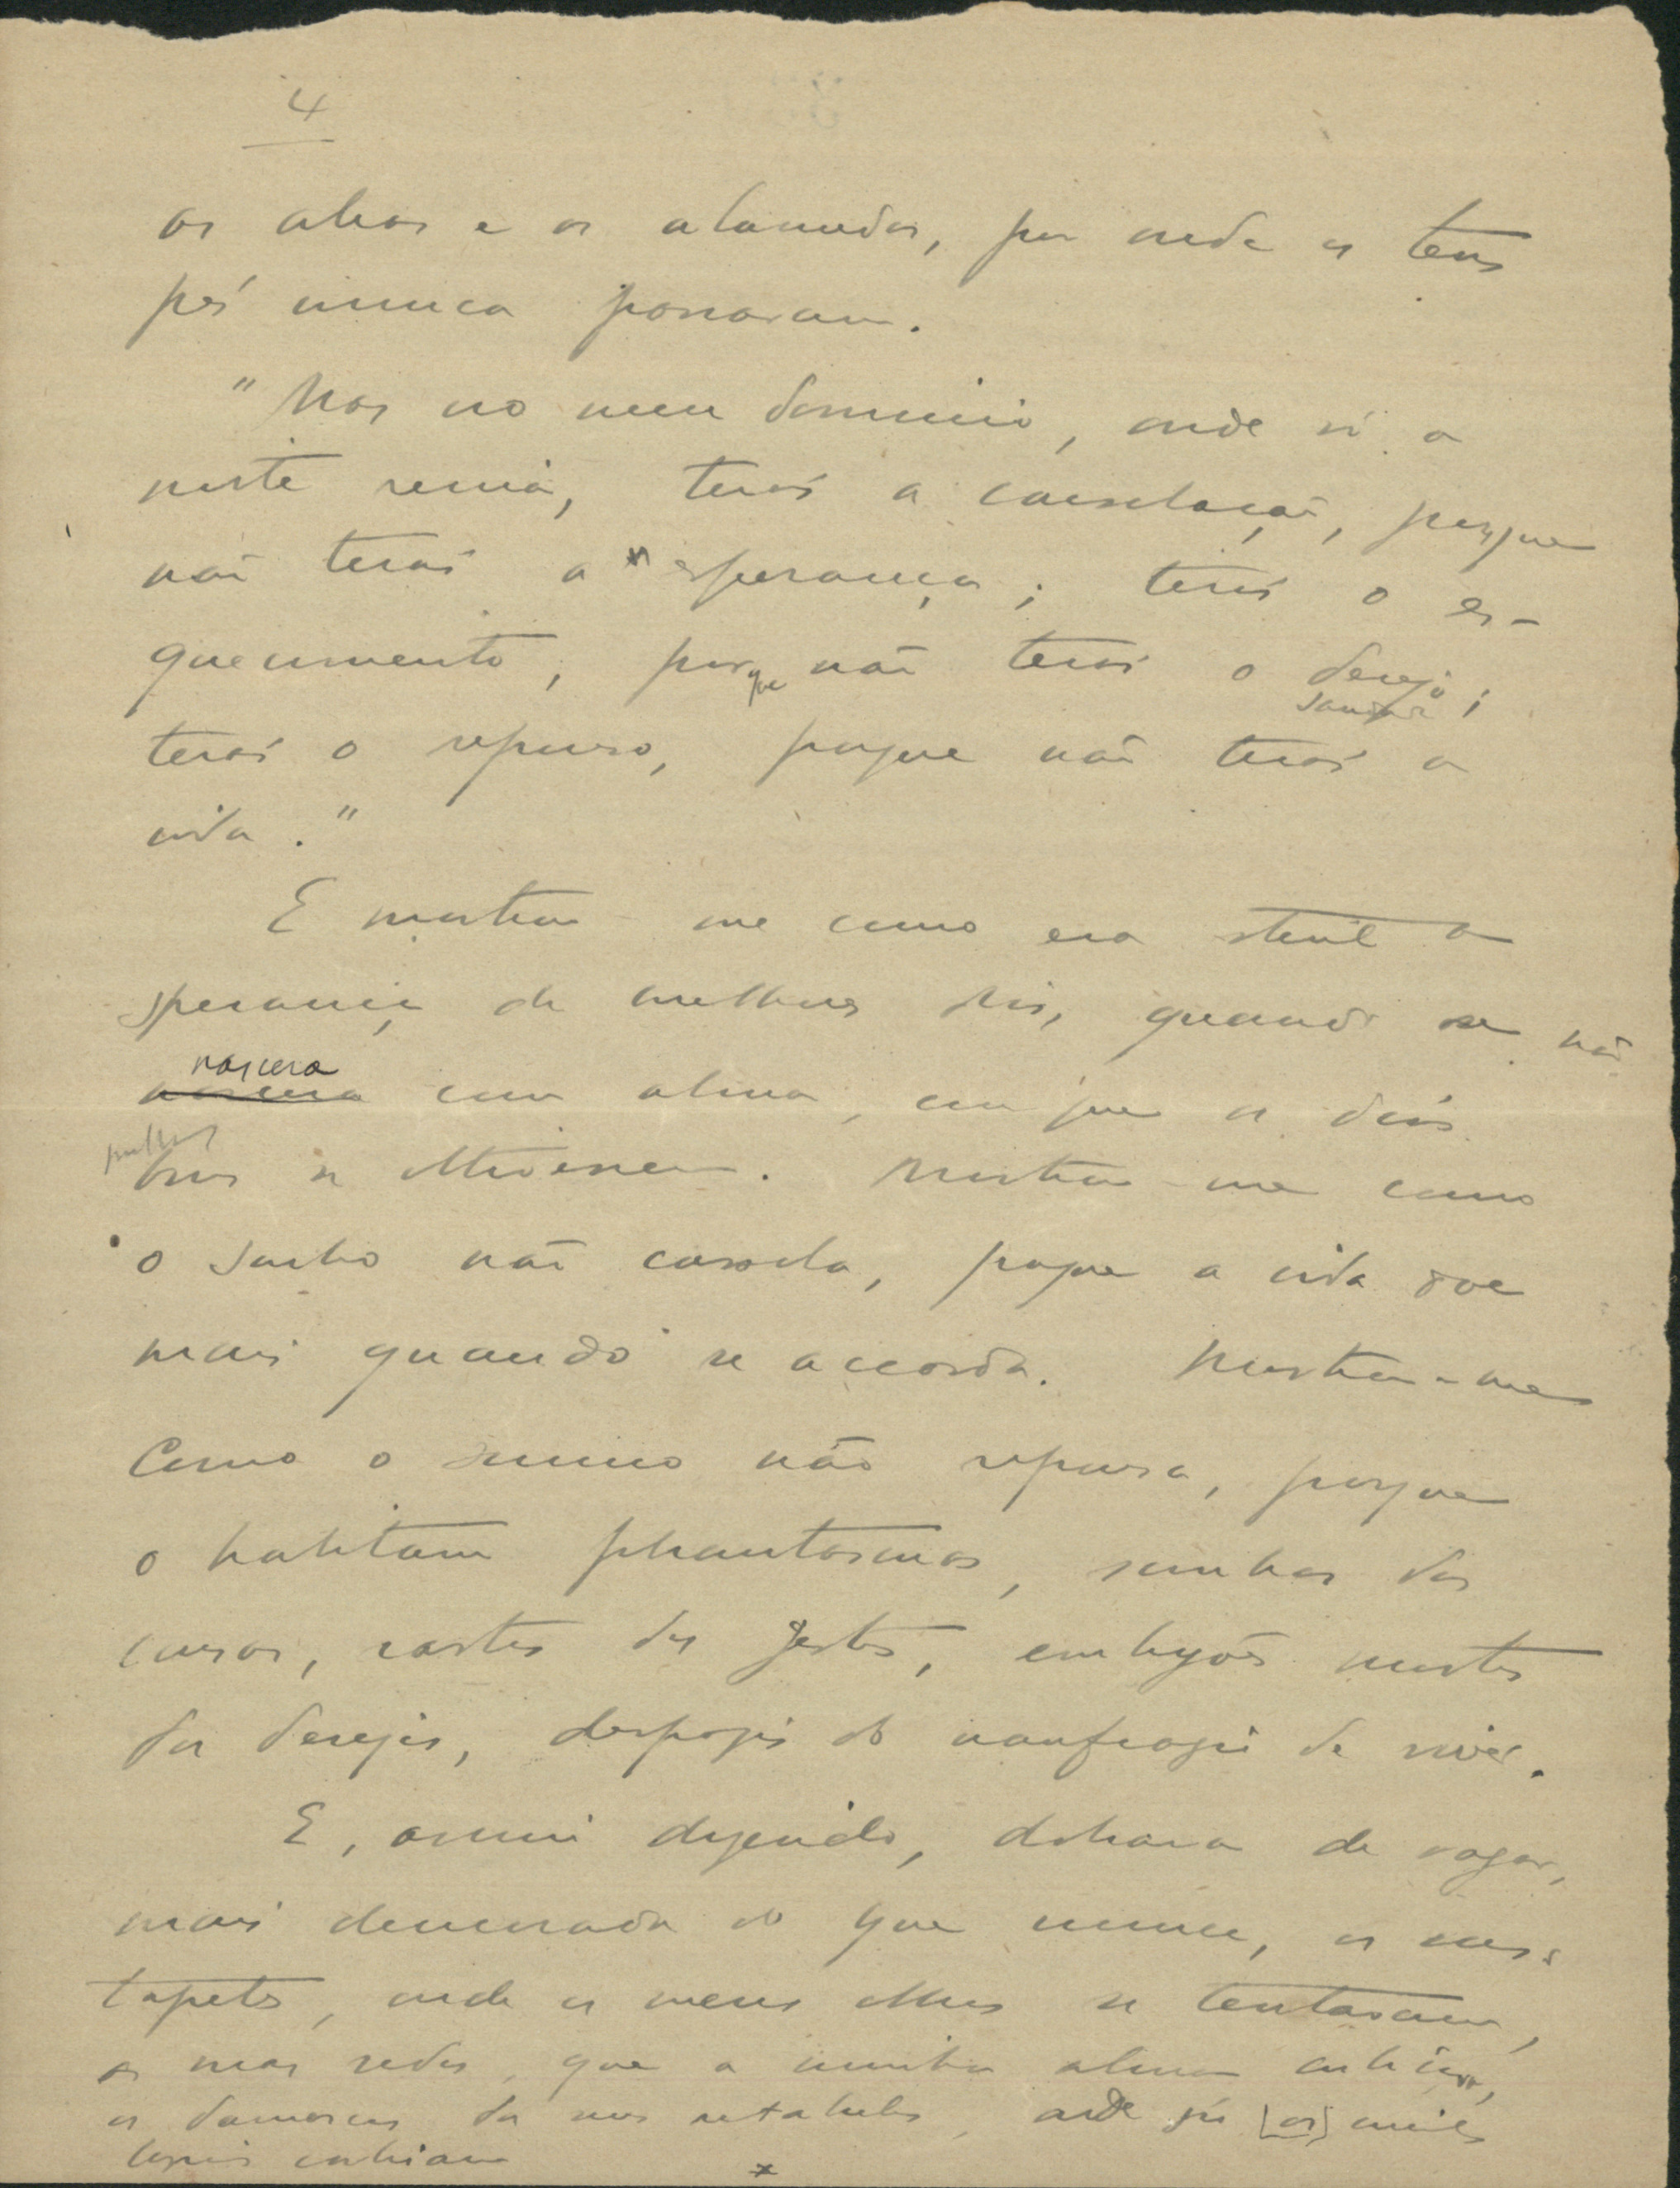 4
as aleas e as alamedas, por onde os teus
pés nunca passaram.
"Mas no meu dominio, onde só a
morte reina, terás a consolação, porque
não terás a esperança; terás o es-
quecimento, porque não terás o desejo;
terás o repouso, porque não terás a
vida."
E mostrou-me como era steril a
sperança de melhores dias, quando se não
nascera
nascera com alma, em que os dias
bons se obtivessem. Mostrou-me como
o sonho não consola, porque a vida doe
mais quando se accorda. Mostrou-me
como o somno não repousa, porque
o habitam phantasmas, sombras das
cousas, rastos dos gestos, embryões mortos
dos desejos, despojos do naufragio de viver.
E, assim dizendo, dobrava de vagar,
mais demorada do que nunca, os seus
tapetes, onde os meus olhos se tentavam,
as suas sedas, que a minha alma cubiçava,
os damascos dos seus retabulos, onde já só [as] minhas
lagrimas cahiam